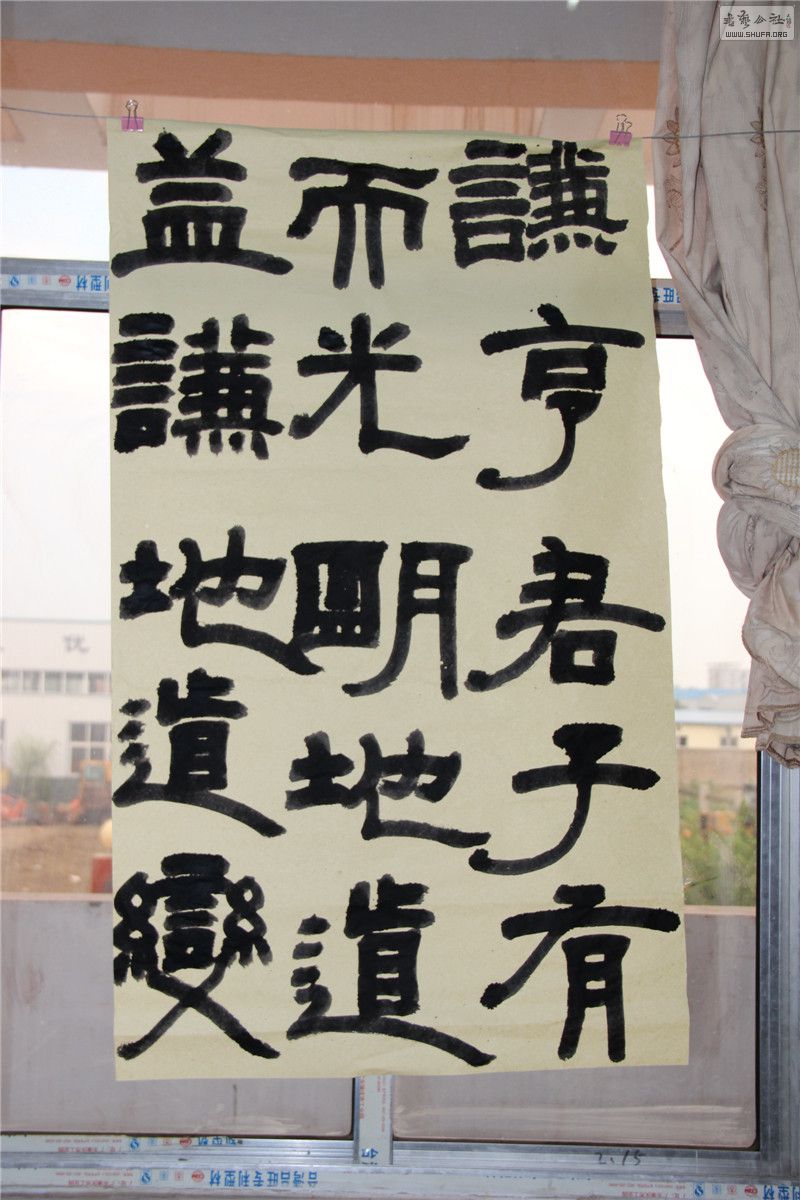 謙亨君子有
而光明地道
益謙地道變
書藝公社
WWW.SHUFA.ORG
2.15